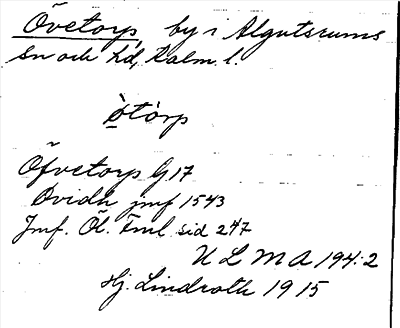 Övetorp, by i Algutsrums
sn och hd, Kalm. l.
ò̱tòrp
Öfvetorp G 17
Ovidh jmf 1543
Jmf. Öl. Fml sid 247
U L M A 194:2
Hj. Lindroth 1915